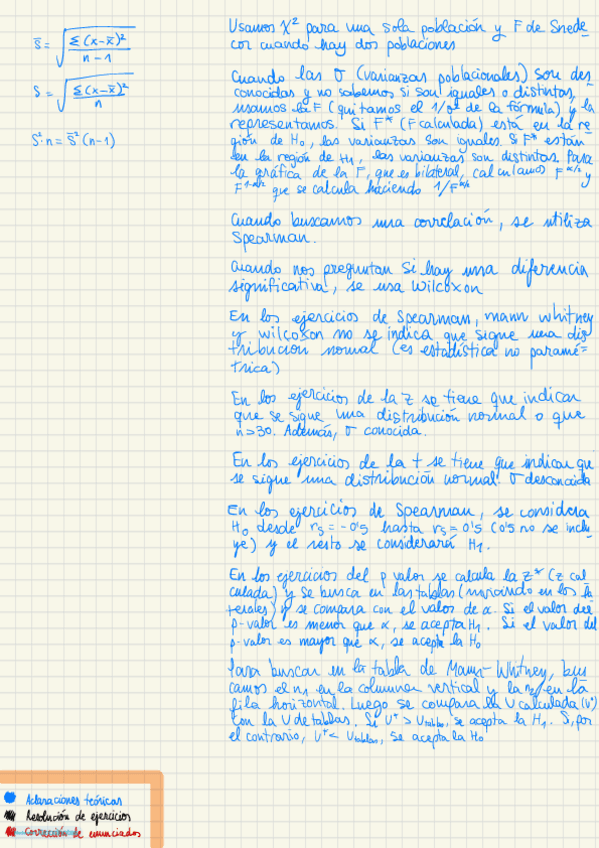 S̄ = √(Σ(x-x̄)² / n-1)
S = √(Σ(x-x̄)² / n)
S²·n = S̄²(n-1)
Usamos χ² para una sola población y F de Snede
cor cuando hay dos poblaciones
Cuando las σ (varianzas poblacionales) son des
conocidas y no sabemos si son iguales o distintas,
usamos la F (quitamos el 1/σ² de la fórmula) y la
representamos. Si F* (F calculada) está en la re
gión de H₀, las varianzas son iguales. Si F* están
en la región de H₁, las varianzas son distintas. Para
la gráfica de la F, que es bilateral, calculamos F^α/2 y
F^1-α/2 que se calcula haciendo 1/F^α/2
Cuando buscamos una correlación, se utiliza
Spearman.
Cuando nos preguntan si hay una diferencia
significativa, se usa Wilcoxon
En los ejercicios de Spearman, mann whitney
y wilcoxon no se indica que sigue una dis
tribución normal (es estadística no paramé-
trica)
En los ejercicios de la z se tiene que indicar
que se sigue una distribución normal o que
n>30. Además, σ conocida.
En los ejercicios de la t se tiene que indicar que
se sigue una distribución normal. σ desconocida
En los ejercicios de Spearman, se considera
H₀ desde rs = -0'5 hasta rs = 0'5 (0'5 no se inclu
ye) y el resto se considerará H₁.
En los ejercicios del p valor se calcula la z* (z cal
culada) y se busca en las tablas (mirando en los la
terales) y se compara con el valor de α. Si el valor del
p-valor es menor que α, se acepta H₁. Si el valor del
p-valor es mayor que α, se acepta la H₀
Para buscar en la tabla de Mann-Whitney, bus
camos el n₁ en la columna vertical y la n₂ en la
fila horizontal. Luego se compara la U calculada (U*)
con la U de tablas. Si U* > U tablas, se acepta la H₁. Si, por
el contrario, U* < U tablas, se acepta la H₀
Aclaraciones teóricas
Resolución de ejercicios
Corrección de enunciados